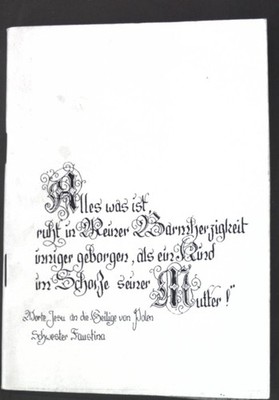 Alles was ist,
ruht in Meiner Barmherzigkeit
inniger geborgen, als ein Kind
im Schoße seiner Mutter!"
Worte Jesu an die Heilige von Polen
Schwester Faustina